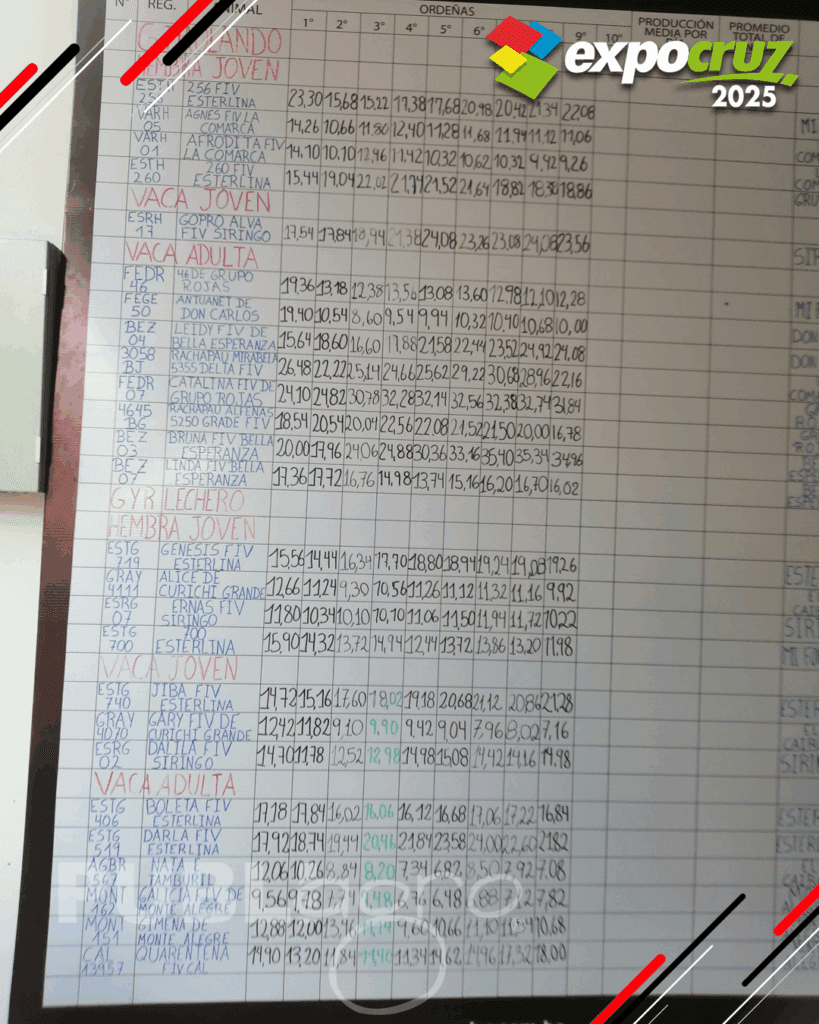 N° REG. ANIMAL ORDEÑAS PRODUCCIÓN MEDIA POR PROMEDIO TOTAL DE
1° 2° 3° 4° 5° 6° 9° 10°
expocruz
2025
HEMBRA JOVEN
256 FIV ESTERLINA 23,30 15,68 15,22 17,38 17,68 20,48 20,42 21,34 22,08
VARH AGNES FIV LA COMARCA 14,26 10,66 11,80 12,40 11,28 11,68 11,94 11,12 11,06
VARH 01 AFRODITA FIV LA COMARCA 14,10 10,10 12,46 11,42 10,32 10,62 10,32 9,92 9,26
ESTH 260 260 FIV ESTERLINA 15,44 19,04 22,02 21,74 21,52 21,64 18,82 18,38 18,86
VACA JOVEN
ESRH 17 GOPRO ALVA FIV SIRINGO 17,54 17,84 18,94 21,38 24,08 23,26 23,08 24,08 23,56
VACA ADULTA
FEDR 46 46 DE GRUPO ROJAS 19,36 13,18 12,38 13,56 13,08 13,60 12,98 12,10 12,28
FEGE 50 ANTUANET DE DON CARLOS 19,40 10,54 8,60 9,54 9,94 10,32 10,40 10,68 10,00
BEZ 04 LEIDY FIV DE BELLA ESPERANZA 15,64 18,60 16,60 17,88 21,58 22,44 23,52 24,92 24,08
3058 BJ RACHAPAU MIRABELA 5355 DELTA FIV 26,48 22,22 25,14 24,66 25,62 29,22 30,68 28,96 22,16
FEDR 07 CATALINA FIV DE GRUPO ROJAS 24,10 24,82 30,78 32,28 32,14 32,56 32,38 32,74 31,84
4645 BG RACHAPAU ALFENAS 5250 GRADE FIV 18,54 20,54 20,04 22,56 22,08 21,52 21,50 20,00 16,78
BEZ 03 BRUNA FIV BELLA ESPERANZA 20,00 17,96 24,06 24,88 30,36 33,16 35,40 35,34 34,96
BEZ 07 LINDA FIV BELLA ESPERANZA 17,36 17,72 16,76 14,98 13,74 15,16 16,20 16,70 16,02
GYR LECHERO
HEMBRA JOVEN
ESTG 719 GENESIS FIV ESTERLINA 15,56 14,44 16,34 17,70 18,80 18,94 19,24 19,08 19,26
GRAY 4111 ALICE DE CURICHI GRANDE 12,66 11,24 9,30 10,56 11,26 11,12 11,32 11,16 9,92
ESRG 07 ERNAS FIV SIRINGO 11,80 10,34 10,10 10,70 11,06 11,50 11,94 11,72 10,22
ESTG 700 700 ESTERLINA 15,90 14,32 13,72 14,94 12,44 13,72 13,86 13,20 11,98
VACA JOVEN
ESTG 740 JIBA FIV ESTERLINA 14,72 15,16 17,60 18,02 19,18 20,68 21,12 20,86 21,28
GRAY 4070 GARY FIV DE CURICHI GRANDE 12,42 11,82 9,10 9,90 9,42 9,04 7,96 8,02 7,16
ESRG 02 DALILA FIV SIRINGO 14,70 11,78 12,52 12,98 14,98 15,08 14,42 14,16 14,98
VACA ADULTA
ESTG 406 BOLETA FIV ESTERLINA 17,18 17,84 16,02 16,06 16,12 16,68 17,06 17,22 16,84
ESTG 519 DARLA FIV ESTERLINA 17,92 18,74 19,44 20,46 21,84 23,58 24,00 22,60 21,82
AGBR 567 NATA TAMBURIL 12,06 10,26 8,84 8,20 7,34 6,82 8,50 7,92 7,08
MONT 162 GALICIA FIV DE MONTE ALEGRE 9,56 9,78 7,74 6,76 6,48 6,88 7,12 7,82
MONT 151 GIMENA DE MONTE ALEGRE 12,88 12,00 13,46 9,60 10,66 11,10 11,54 10,68
CAL 13957 QUARENTENA FIV CAL 14,90 13,20 11,84 11,40 11,34 14,62 14,96 17,32 18,00
PUBLIagro